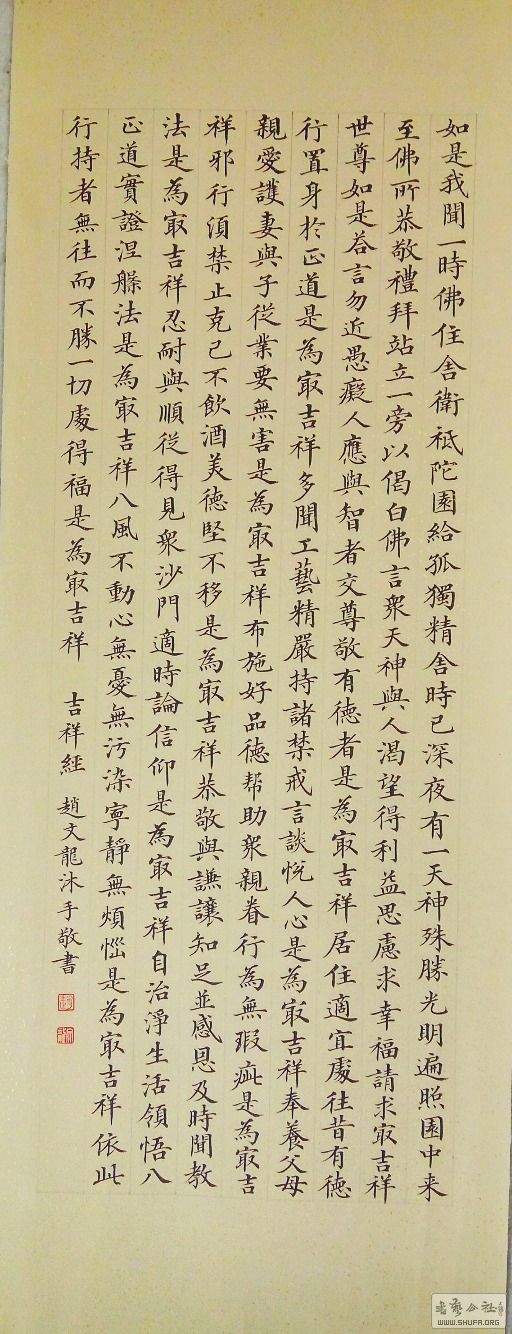 如是我聞一時佛住舍衛祗陀園給孤獨精舍時已深夜有一天神殊勝光明遍照園中来
至佛所恭敬禮拜站立一旁以偈白佛言衆天神與人渴望得利益思慮求幸福請求㝡吉祥
世尊如是荅言勿近愚癡人應與智者交尊敬有德者是為㝡吉祥居住適宜處往昔有德
行置身於正道是為㝡吉祥多聞工藝精嚴持諸禁戒言談悅人心是為㝡吉祥奉養父母
親愛護妻與子從業要無害是為㝡吉祥布施好品德帮助衆親眷行為無瑕疵是為㝡吉
祥邪行須禁止克己不飲酒美德堅不移是為㝡吉祥恭敬與謙讓知足並感恩及時聞教
法是為㝡吉祥忍耐與順從得見衆沙門適時論信仰是為㝡吉祥自治淨生活領悟八
正道實證涅槃法是為㝡吉祥八風不動心無憂無污染寧靜無煩惱是為㝡吉祥依此
行持者無往而不勝一切處得福是為㝡吉祥 吉祥經 趙文龍沐手敬書
WWW.SHUFA.ORG